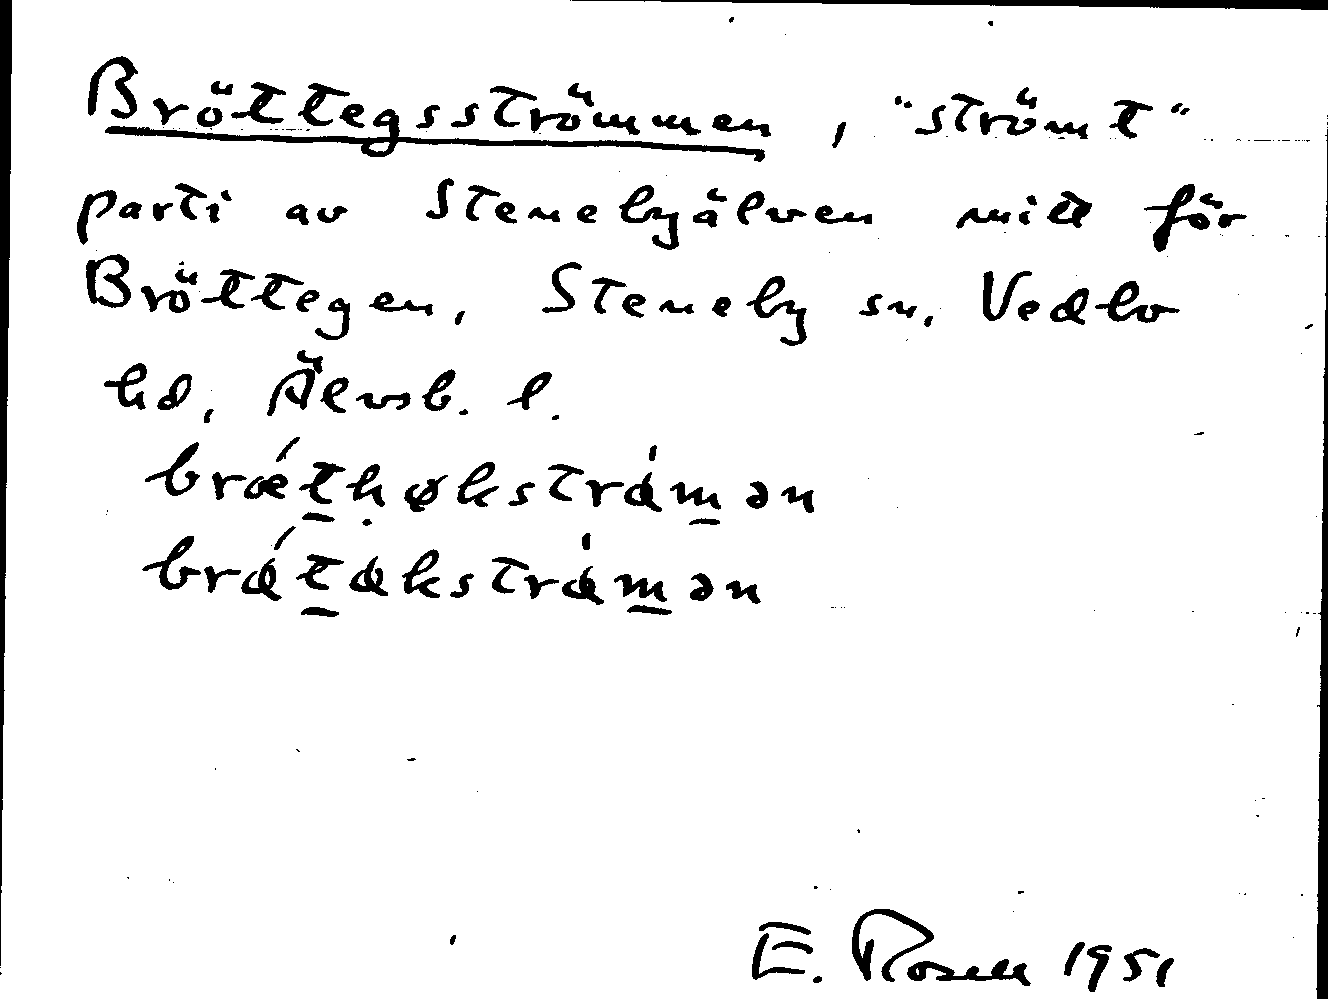 Bröttegsströmmen, "strömt"
parti av Stenebyälven mitt för
Bröttegen, Steneby sn, Vedbo
hd, Älvsb. l.
brǽt̲ḥøkstrǿm̲ən
brǿt̲økstrǿm̲ən
E. Rosell 1951